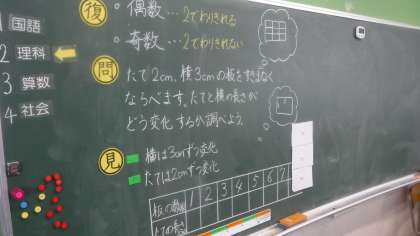 1 国語
2 理科
3 算数
4 社会
復
・偶数…2でわりきれる
・奇数…2でわりきれない
問
たて2cm、横3cmの板をすきまなく
ならべます。たてと横の長さが
どう変化するか調べよう。
見
横は3cmずつ変化
たては2cmずつ変化
板の数 1 2 3 4 5 6 7